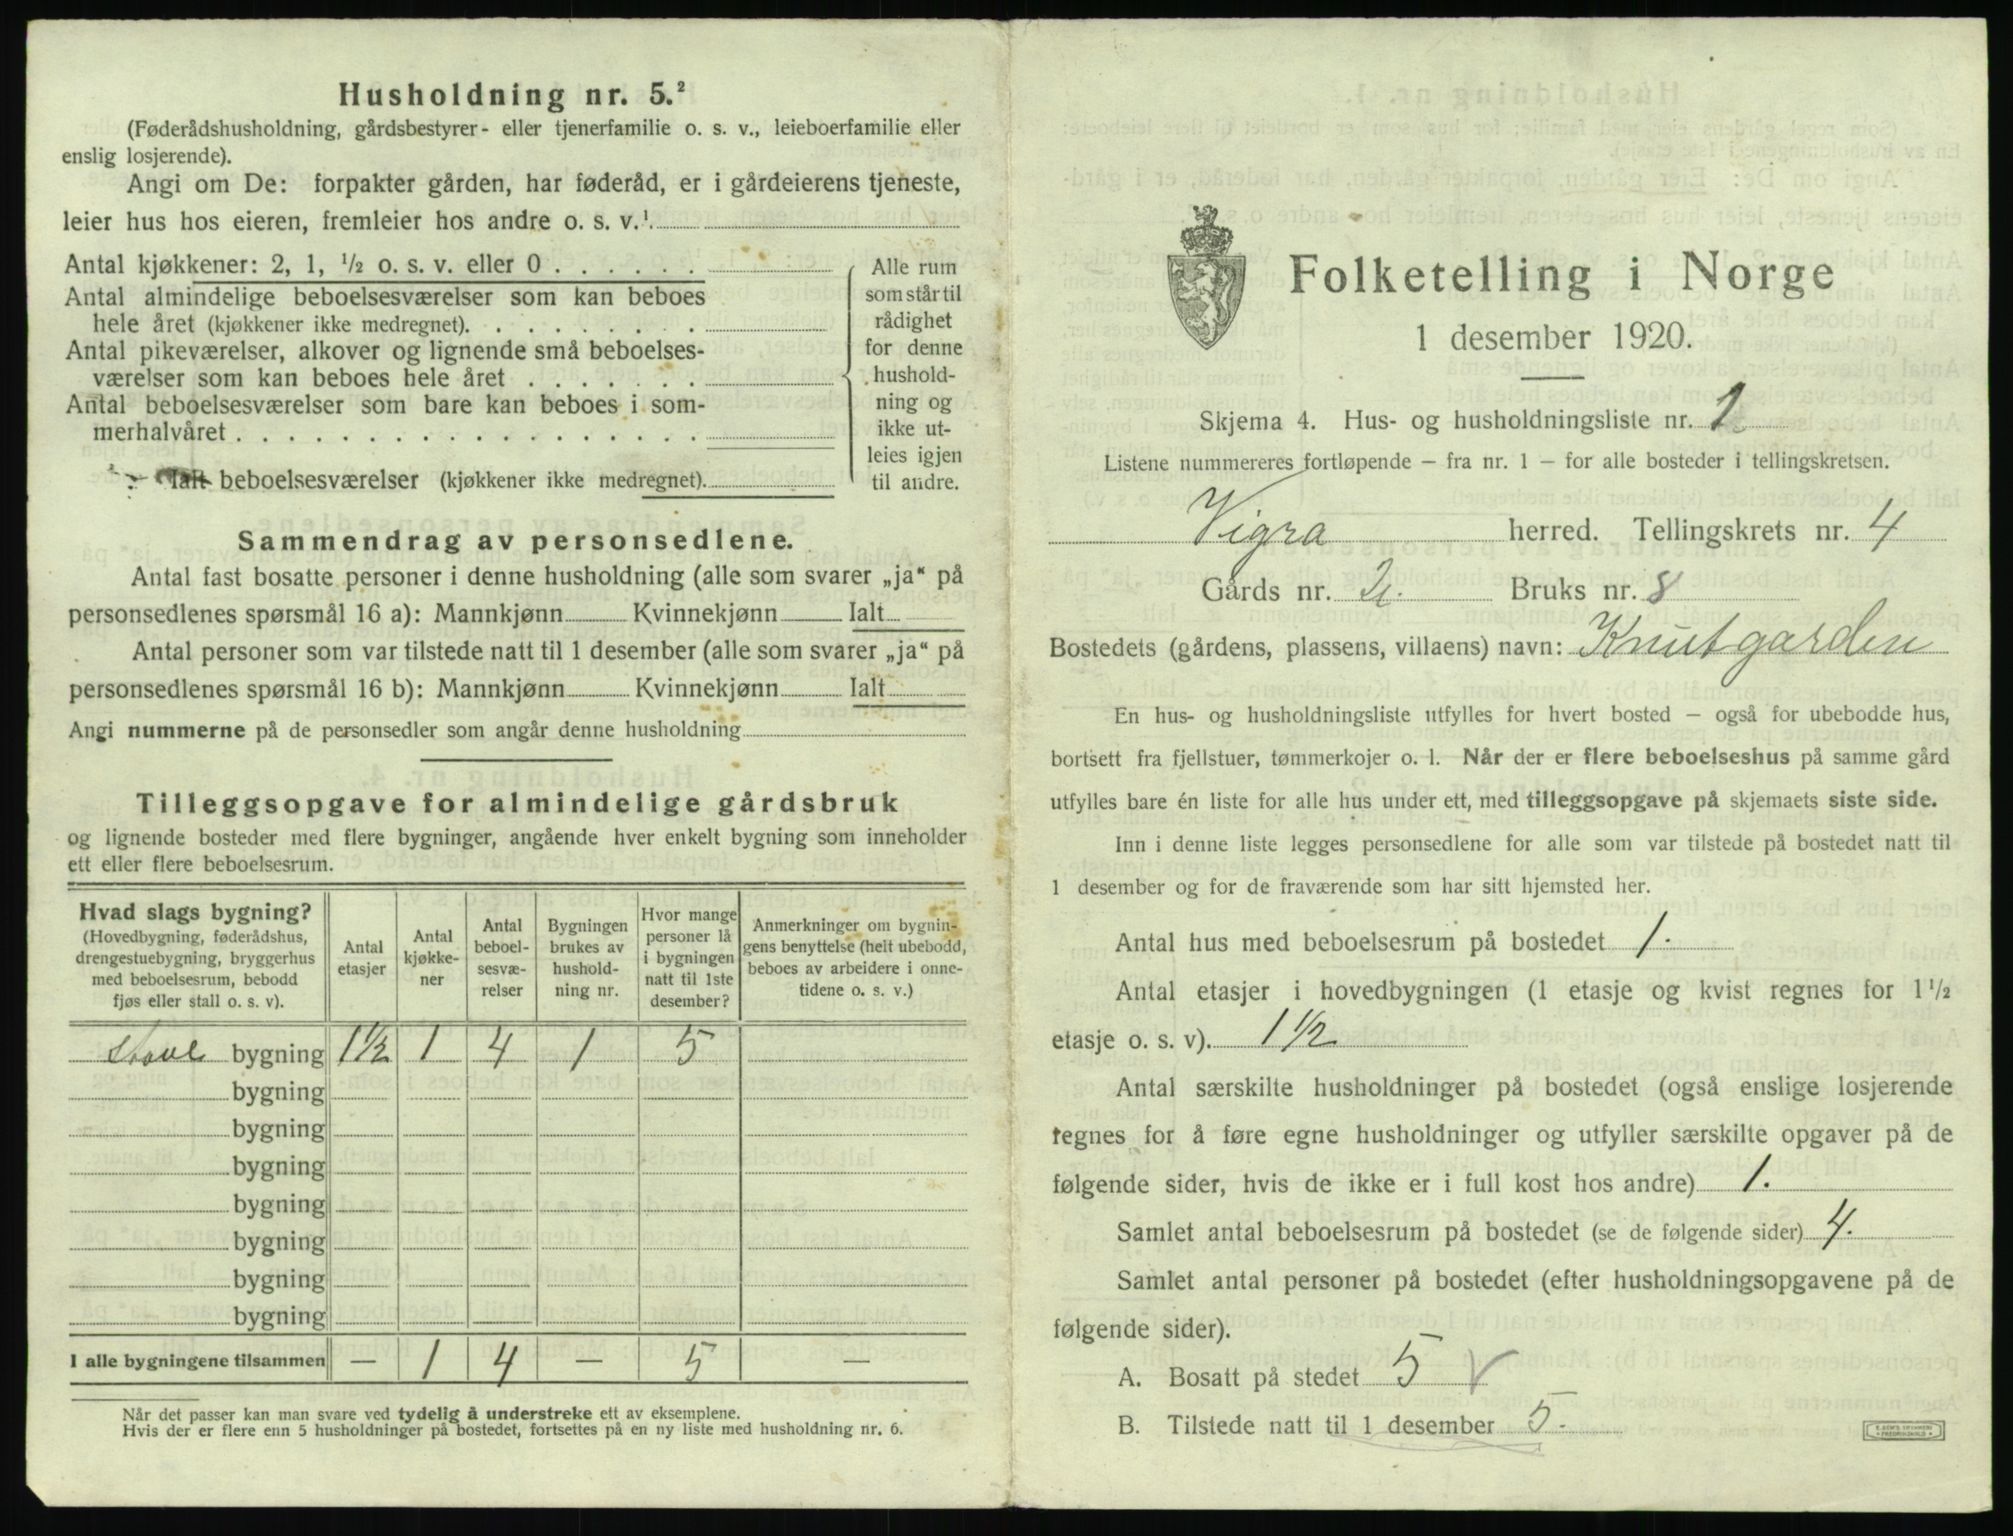 Husholdning nr. 5.²
(Føderådshusholdning, gårdsbestyrer- eller tjenerfamilie o. s. v., leieboerfamilie eller
enslig losjerende).
Angi om De: forpakter gården, har føderåd, er i gårdeierens tjeneste,
leier hus hos eieren, fremleier hos andre o. s. v.¹
Antal kjøkkener: 2, 1, ½ o. s. v. eller 0
Antal almindelige beboelsesværelser som kan beboes
hele året (kjøkkener ikke medregnet).
Antal pikeværelser, alkover og lignende små beboelses-
værelser som kan beboes hele året
Antal beboelsesværelser som bare kan beboes i som-
merhalvåret
Ialt beboelsesværelser (kjøkkener ikke medregnet).
Alle rum
som står til
rådighet
for denne
hushold-
ning og
ikke ut-
leies igjen
til andre.
Sammendrag av personsedlene.
Antal fast bosatte personer i denne husholdning (alle som svarer „ja“ på
personsedlenes spørsmål 16 a): Mannkjønn Kvinnekjønn Ialt
Antal personer som var tilstede natt til 1 desember (alle som svarer „ja“ på
personsedlenes spørsmål 16 b): Mannkjønn Kvinnekjønn Ialt
Angi nummerne på de personsedler som angår denne husholdning
Tilleggsopgave for almindelige gårdsbruk
og lignende bosteder med flere bygninger, angående hver enkelt bygning som inneholder
ett eller flere beboelsesrum.
Hvad slags bygning?
(Hovedbygning, føderådshus,
drengestuebygning, bryggerhus
med beboelsesrum, bebodd
fjøs eller stall o. s. v).
Antal
etasjer
Antal
kjøkke-
ner
Antal
beboel-
sesvæ-
relser
Bygningen
brukes av
hushold-
ning nr.
Hvor mange
personer lå
i bygningen
natt til 1ste
desember?
Anmerkninger om bygnin-
gens benyttelse (helt ubebodd,
beboes av arbeidere i onne-
tidene o. s. v.)
bygning 1½ 1 4 1 5
bygning
bygning
bygning
bygning
bygning
bygning
bygning
I alle bygningene tilsammen — 1 4 — 5 —
Når det passer kan man svare ved tydelig å understreke ett av eksemplene.
Hvis der er flere enn 5 husholdninger på bostedet, fortsettes på en ny liste med husholdning nr. 6.
Folketelling i Norge
1 desember 1920.
Skjema 4. Hus- og husholdningsliste nr. 1
Listene nummereres fortløpende — fra nr. 1 — for alle bosteder i tellingskretsen.
Vigra herred. Tellingskrets nr. 4
Gårds nr. Bruks nr. 8
Bostedets (gårdens, plassens, villaens) navn: Knutgarden
En hus- og husholdningsliste utfylles for hvert bosted — også for ubebodde hus,
bortsett fra fjellstuer, tømmerkojer o. l. Når der er flere beboelseshus på samme gård
utfylles bare én liste for alle hus under ett, med tilleggsopgave på skjemaets siste side.
Inn i denne liste legges personsedlene for alle som var tilstede på bostedet natt til
1 desember og for de fraværende som har sitt hjemsted her.
Antal hus med beboelsesrum på bostedet 1.
Antal etasjer i hovedbygningen (1 etasje og kvist regnes for 1½
etasje o. s. v). 1½
Antal særskilte husholdninger på bostedet (også enslige losjerende
regnes for å føre egne husholdninger og utfyller særskilte opgaver på de
følgende sider, hvis de ikke er i full kost hos andre) 1.
Samlet antal beboelsesrum på bostedet (se de følgende sider) 4.
Samlet antal personer på bostedet (efter husholdningsopgavene på de
følgende sider).
A. Bosatt på stedet 5
B. Tilstede natt til 1 desember 5.